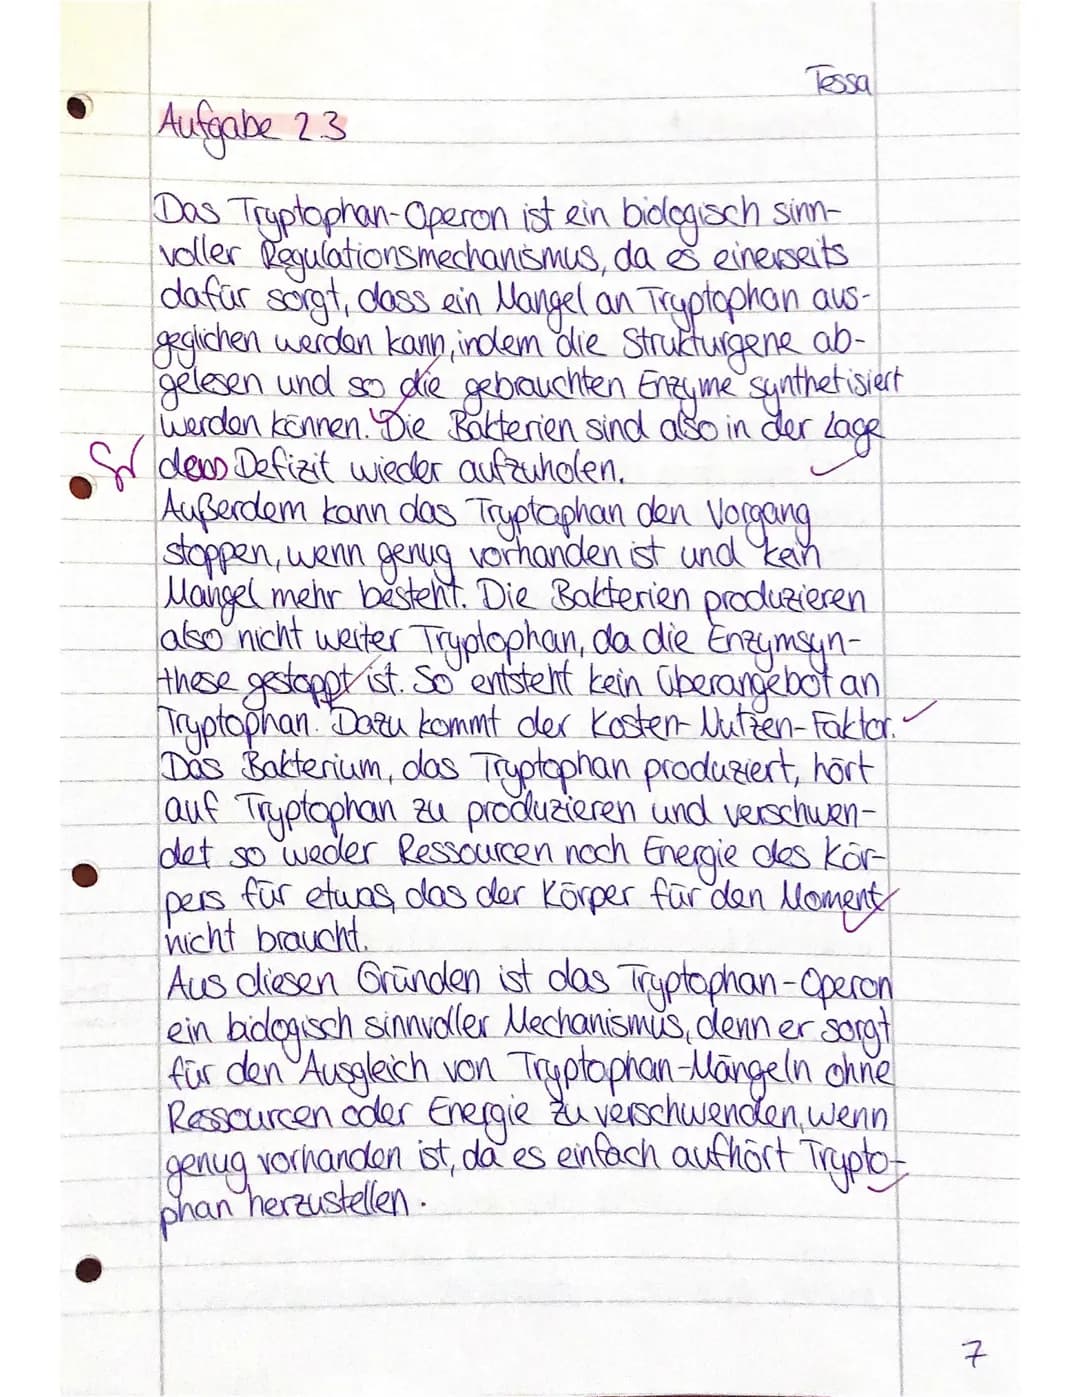 Tessa
Aufgabe 2.3
Das Tryptophan-Operon ist ein biologisch sinn-
voller Regulationsmechanismus, da es einerseits
dafür sorgt, dass ein Mangel an Tryptophan aus-
geglichen werden kann, indem die Strukturgene ab-
gelesen und so die gebrauchten Enzyme synthetisiert
werden können. Die Bakterien sind also in der Lage
das Defizit wieder aufzuholen.
Außerdem kann das Tryptophan den Vorgang
stoppen, wenn genug vorhanden ist und kein
Mangel mehr besteht. Die Bakterien produzieren
also nicht weiter Tryptophan, da die Enzymsyn-
these gestoppt ist. So entsteht kein Überangebot an
Tryptophan. Dazu kommt der Kosten-Nutzen-Faktor.
Das Bakterium, das Tryptophan produziert, hört
auf Tryptophan zu produzieren und verschwen-
det so weder Ressourcen noch Energie des Kör-
pers für etwas, das der Körper für den Moment
nicht braucht.
Aus diesen Gründen ist das Tryptophan-Operon
ein biologisch sinnvoller Mechanismus, denn er sorgt
für den Ausgleich von Tryptophan-Mängeln ohne
Ressourcen oder Energie zu verschwenden, wenn
genug vorhanden ist, da es einfach aufhört Trypto-
phan herzustellen.
7